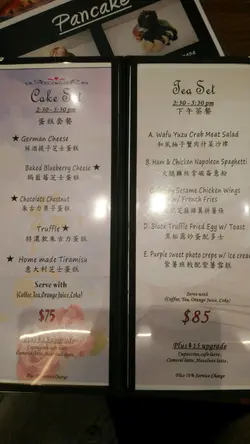 Pancake
Cake Set
2:30 - 5:30 pm
蛋糕套餐
★ German Cheese
Baked Blueberry Cheese ★
藍莓芝士蛋糕
★ Chocolate Chestnut
朱古力栗子蛋糕
Truffle ★
特濃軟朱古力蛋糕
★ Home made Tiramisu
意大利芝士蛋糕
Serve with
(Coffee, Tea, Orange Juice, Coke)
$75
Plus $15 upgrade
Cappuccino, cafe latte,
Caramel latte, Hazelnut latte,
Service Charge
Tea Set
2:30 - 5:30 pm
下午茶餐
A. Wafu Yuzu Crab Meat Salad
和風柚子蟹肉什菜沙律
B. Ham & Chicken Napoleon Spaghetti
Sesame Chicken Wings
w/ French Fries
D. Black Truffle Fried Egg w/ Toast
黑松露炒蛋配多士
E. Purple sweet photo crepe w/ Ice cream
紫薯班戟配紫薯雪糕
Serve with
(Coffee, Tea, Orange Juice, Coke)
$85
Plus $15 upgrade
Cappuccino, cafe latte,
Caramel latte, Hazelnut latte,
Plus 10% Service Charge